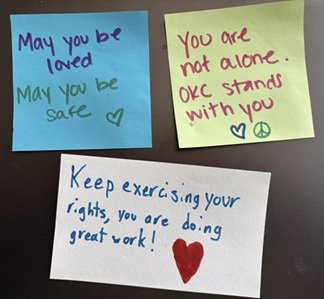 May you be
loved
May you be
safe
You are
not alone.
OKC stands
with you
Keep exercising your
rights, you are doing
great work!